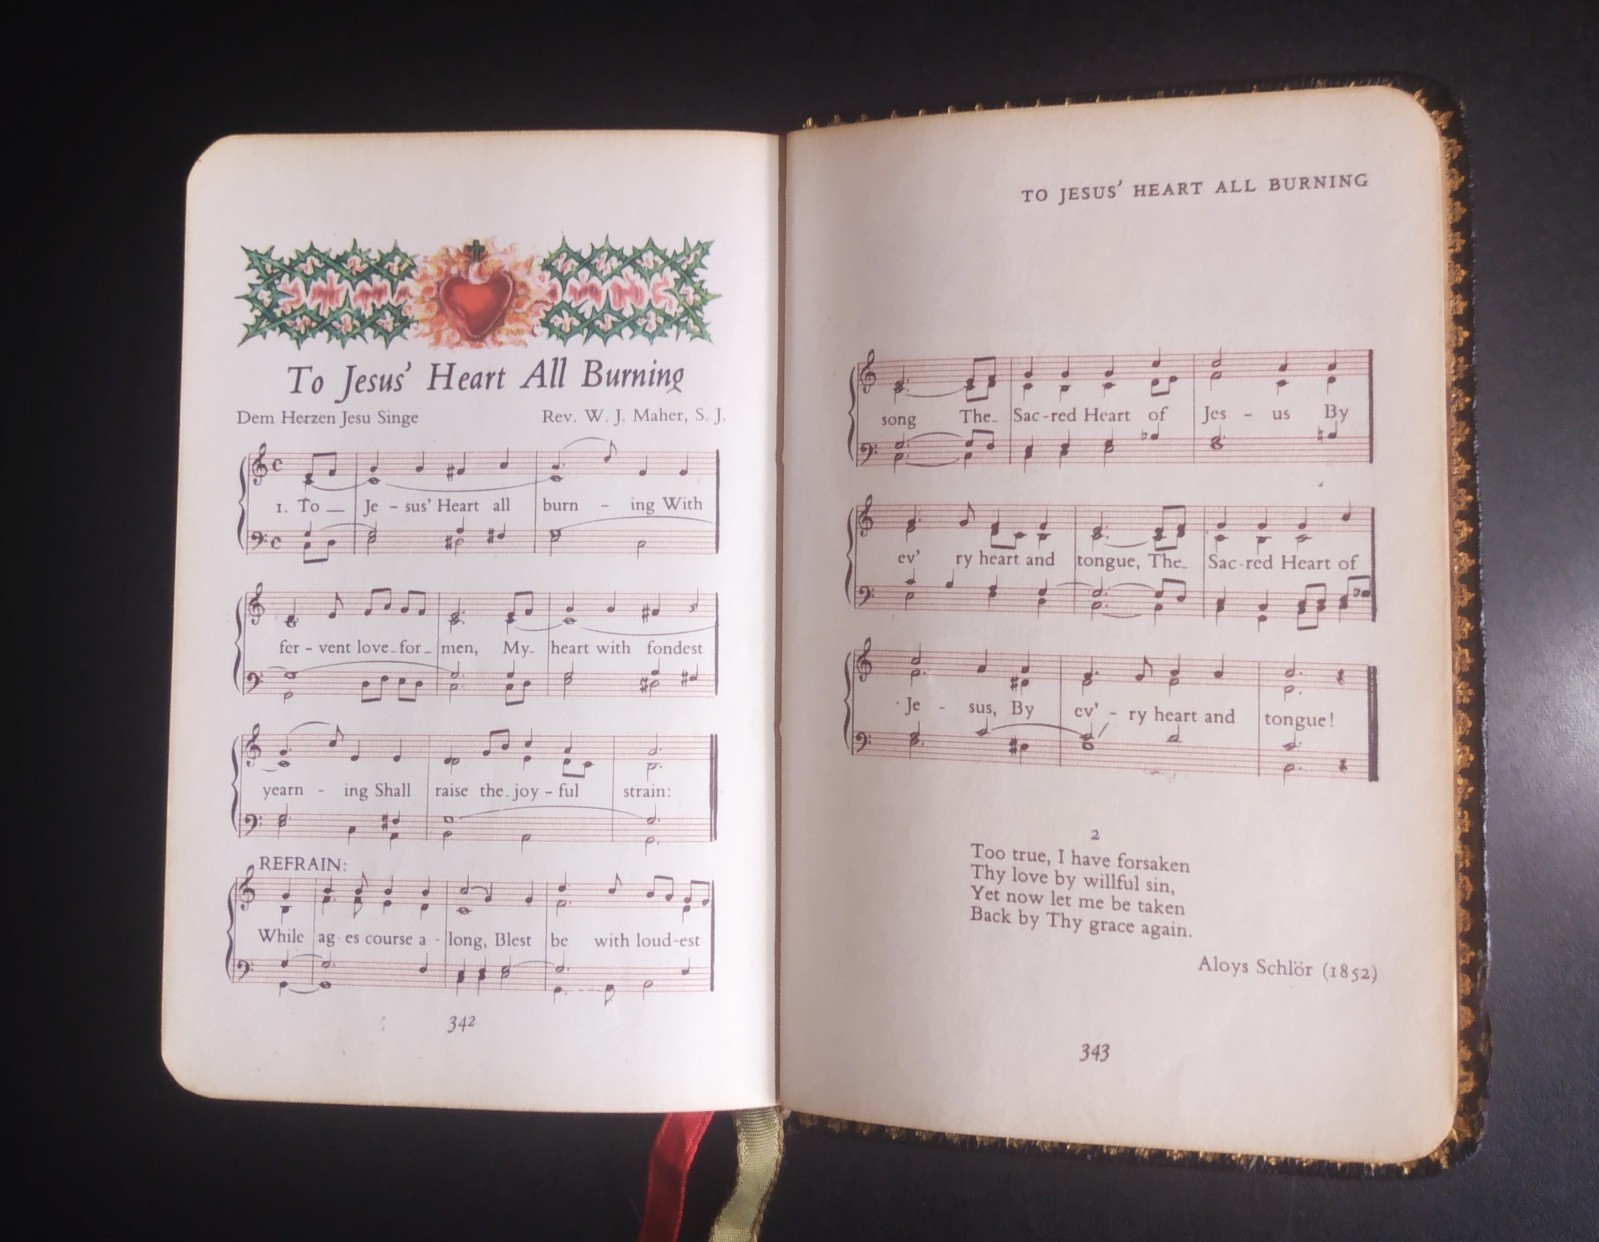 To Jesus' Heart All Burning
Dem Herzen Jesu Singe Rev. W. J. Maher, S. J.
1. To — Je - sus' Heart all burn - ing With
fer - vent love - for - men, My - heart with fondest
yearn - ing Shall raise the - joy - ful strain:
REFRAIN:
While ag - es course a - long, Blest be with loud-est
342
TO JESUS' HEART ALL BURNING
song The - Sac - red Heart of Jes - us By
ev' ry heart and tongue, The - Sac - red Heart of
Je - sus, By ev' - ry heart and tongue!
2
Too true, I have forsaken
Thy love by willful sin,
Yet now let me be taken
Back by Thy grace again.
Aloys Schlör (1852)
343